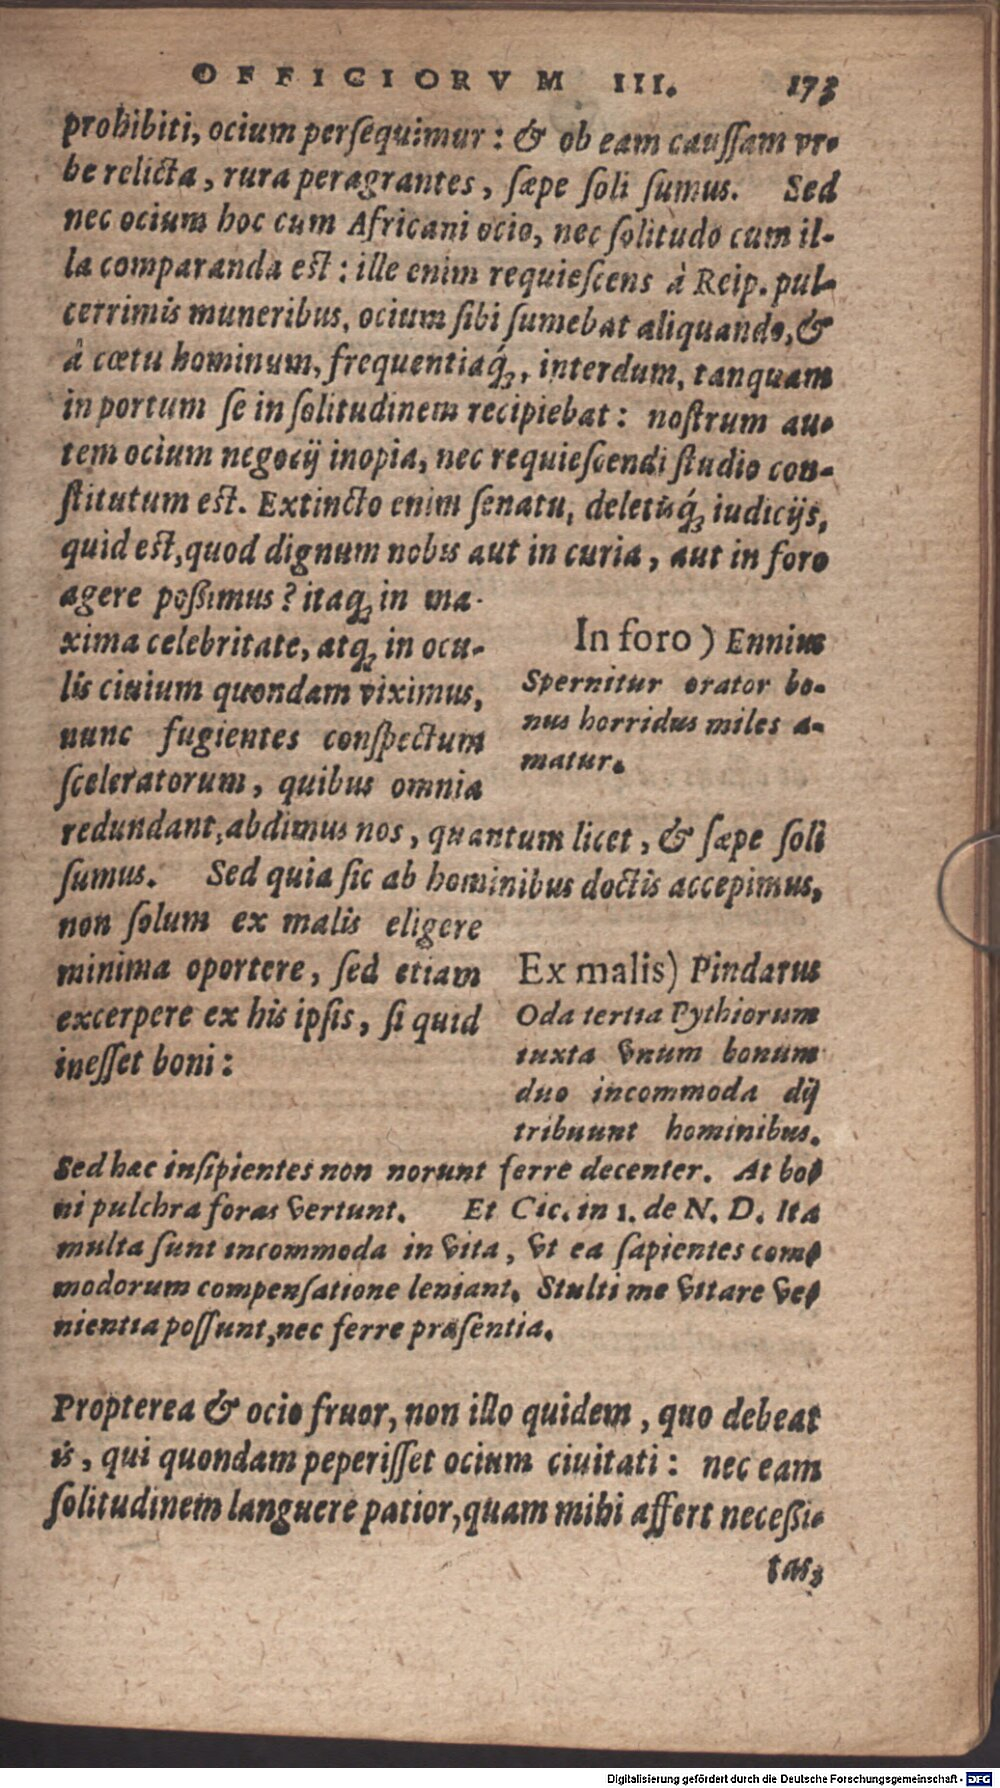 OFFICIORVM III. 173
prohibiti, ocium persequimur: & ob eam caussam vr-
be relicta, rura peragrantes, sæpe soli sumus. Sed
nec ocium hoc cum Africani ocio, nec solitudo cum il-
la comparanda est: ille enim requiescens à Reip. pul-
cerrimis muneribus, ocium sibi sumebat aliquando, &
à cœtu hominum, frequentiaq́;, interdum, tanquam
in portum se in solitudinem recipiebat: nostrum au-
tem ocium negocij inopia, nec requiescendi studio con-
stitutum est. Extincto enim senatu, deletisq́; iudicijs,
quid est, quod dignum nobis aut in curia, aut in foro
agere possimus? itaq; in ma-
xima celebritate, atq; in ocu-
lis ciuium quondam viximus,
nunc fugientes conspectum
sceleratorum, quibus omnia
In foro ) Ennius
Spernitur orator bo-
nus horridus miles a-
matur.
redundant, abdimus nos, quantum licet, & sæpe soli
sumus. Sed quia sic ab hominibus doctis accepimus,
non solum ex malis eligere
minima oportere, sed etiam
excerpere ex his ipsis, si quid
inesset boni:
Ex malis) Pindarus
Oda tertia Pythiorum
iuxta vnum bonum
duo incommoda dij
tribuunt hominibus.
Sed hæc insipientes non norunt ferre decenter. At bo-
ni pulchra foras vertunt. Et Cic. in 1. de N. D. Ita
multa sunt incommoda in vita, vt ea sapientes com-
modorum compensatione leniant. Stulti me vitare ve-
nientia possunt, nec ferre præsentia.
Propterea & ocio fruor, non illo quidem, quo debeat
is, qui quondam peperisset ocium ciuitati: nec eam
solitudinem languere patior, quam mihi affert necessi-
tas;
Digitalisierung gefördert durch die Deutsche Forschungsgemeinschaft - DFG